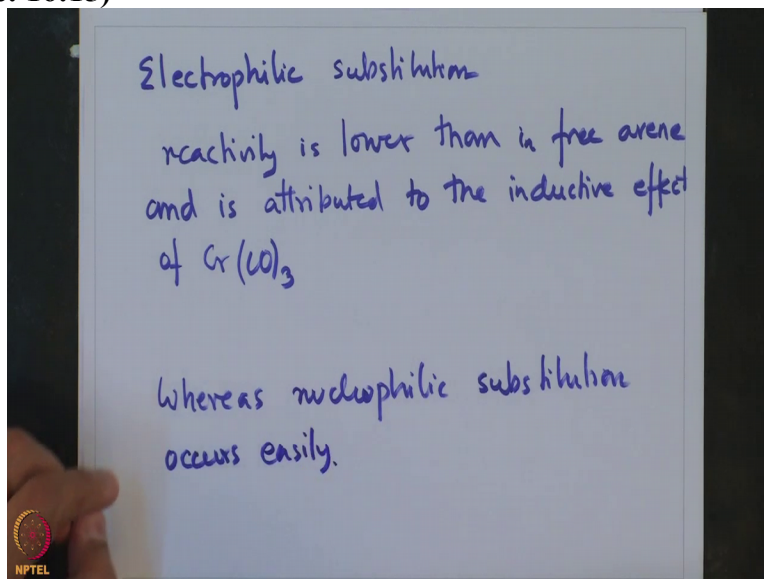 Electrophilic substitution
reactivity is lower than in free arene
and is attributed to the inductive effect
of Cr(CO)3
Whereas nucleophilic substitution
occurs easily.
NPTEL